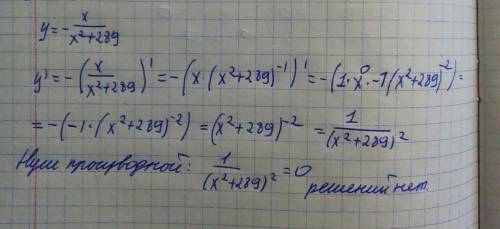 y = - x/(x²+289)
y' = -(x/(x²+289))' = -(x·(x²+289)⁻¹)' = -(1·x⁰·-1(x²+289)⁻²) =
= -(-1·(x²+289)⁻²) = (x²+289)⁻² = 1/(x²+289)²
Нули производной: 1/(x²+289)² = 0 решений нет.